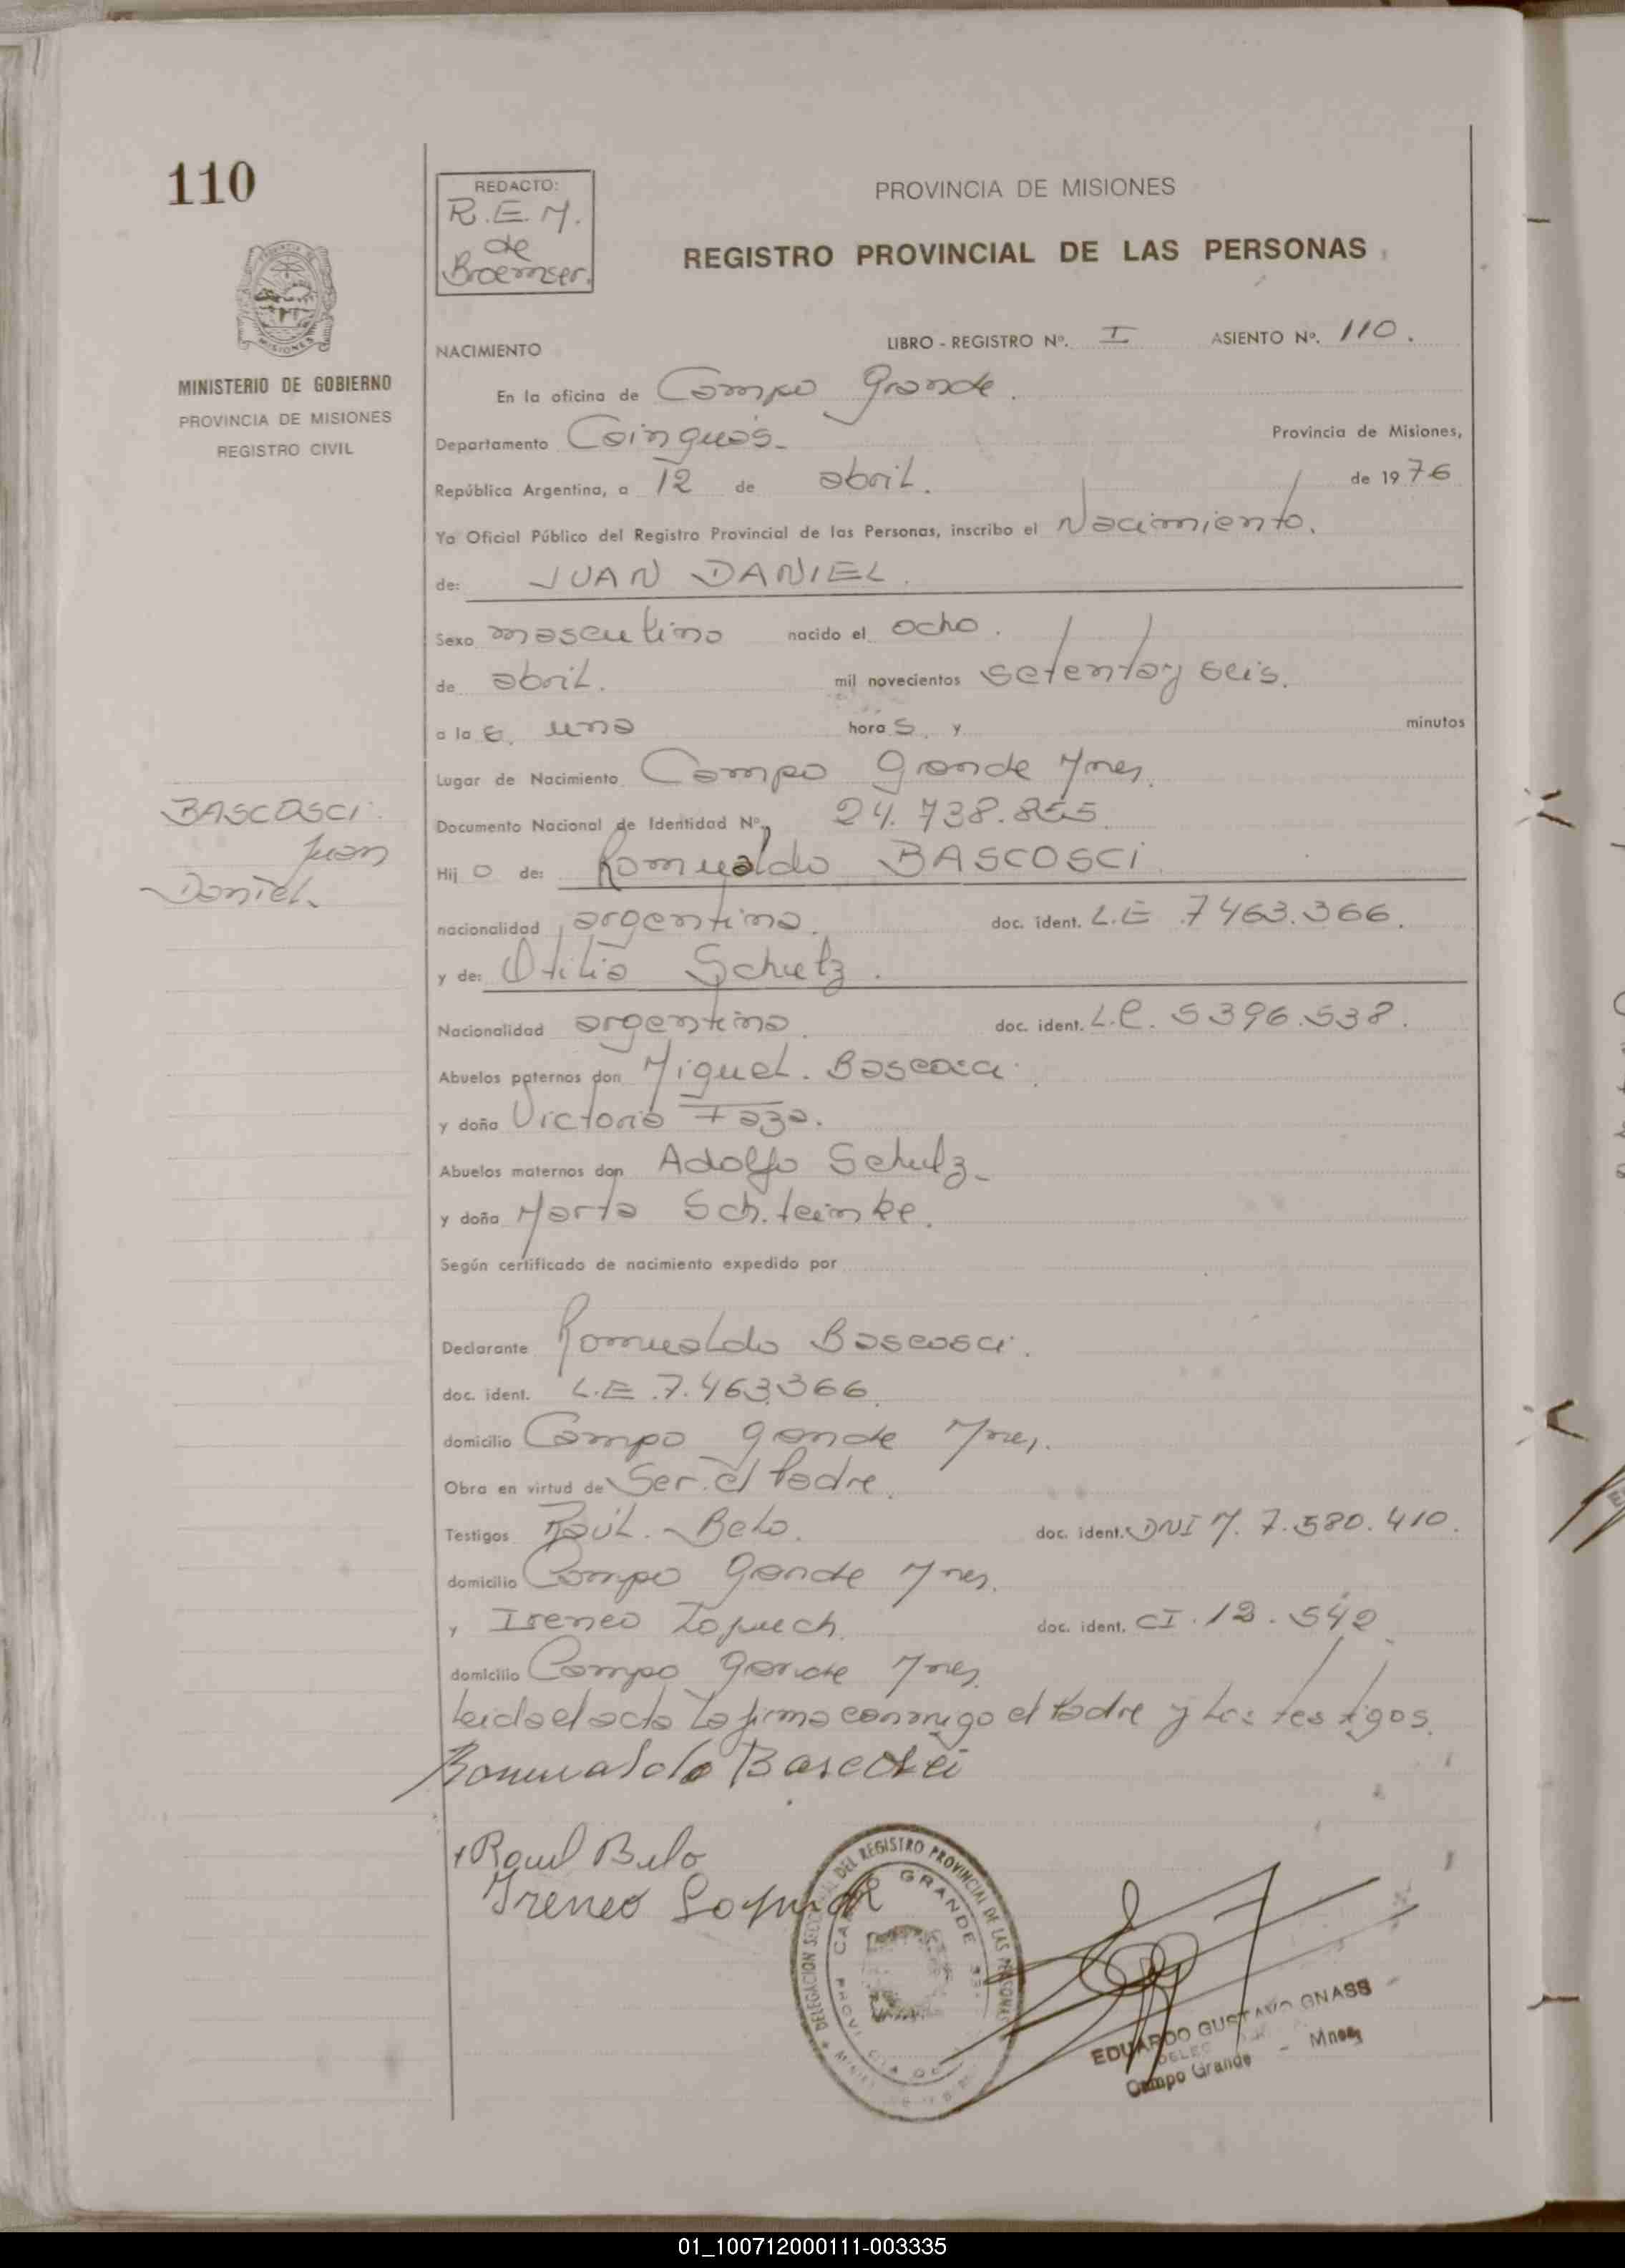 110
REDACTO:
R.E.M.
de
Broemser.
PROVINCIA DE MISIONES
REGISTRO PROVINCIAL DE LAS PERSONAS
MINISTERIO DE GOBIERNO
PROVINCIA DE MISIONES
REGISTRO CIVIL
NACIMIENTO
LIBRO - REGISTRO Nº. I ASIENTO Nº. 110.
En la oficina de Campo Grande.
Departamento Cainguás- Provincia de Misiones,
República Argentina, a 12 de abril. de 1976
Yo Oficial Público del Registro Provincial de las Personas, inscribo el Nacimiento.
de: JUAN DANIEL.
Sexo masculino nacido el ocho.
de abril. mil novecientos setenta y seis.
a la s. una hora s. y minutos
Lugar de Nacimiento Campo Grande Mnes.
BASCOSCI
Juan
Daniel.
Documento Nacional de Identidad Nº. 24.738.855
Hij o de: Romualdo BASCOSCI
nacionalidad argentina. doc. ident. L.E 7463.366.
y de: Otilia Schulz.
Nacionalidad argentina doc. ident. L.C. 5396.538.
Abuelos paternos don Miguel. Bascosci
y doña Victoria
Abuelos maternos don Adolfo Schulz-
y doña Marta Sch.teimke.
Según certificado de nacimiento expedido por
Declarante Romualdo Bascosci.
doc. ident. L.E.7.463.366
domicilio Campo Gande Mnes.
Obra en virtud de Ser el Padre.
Testigos Raúl. Belo. doc. ident. DNI M. 7.580.410.
domicilio Campo Gande Mnes.
y Ireneo doc. ident. CI.12.542
domicilio Campo Gande Mnes.
Leida el acta la firma conmigo el Padre y los testigos.
Romualdo Bascosci
Raul Belo
Ireneo
DELEGACION SECCIONAL DEL REGISTRO PROVINCIAL DE LAS PERSONAS
CAMPO GRANDE
EDUARDO GUSTAVO GNASS
Campo Grande - Mnes
01_100712000111-003335